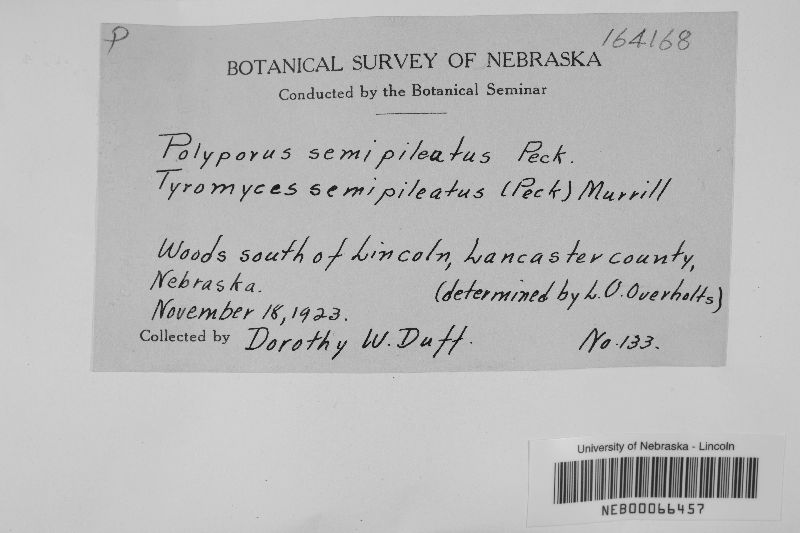 P
164168
BOTANICAL SURVEY OF NEBRASKA
Conducted by the Botanical Seminar
Polyporus semipileatus Peck.
Tyromyces semipileatus (Peck) Murrill
Woods south of Lincoln, Lancaster county,
Nebraska. (determined by L.O. Overholts)
November 18, 1923.
Collected by Dorothy W. Duff. No. 133.
University of Nebraska - Lincoln
NEB00066457